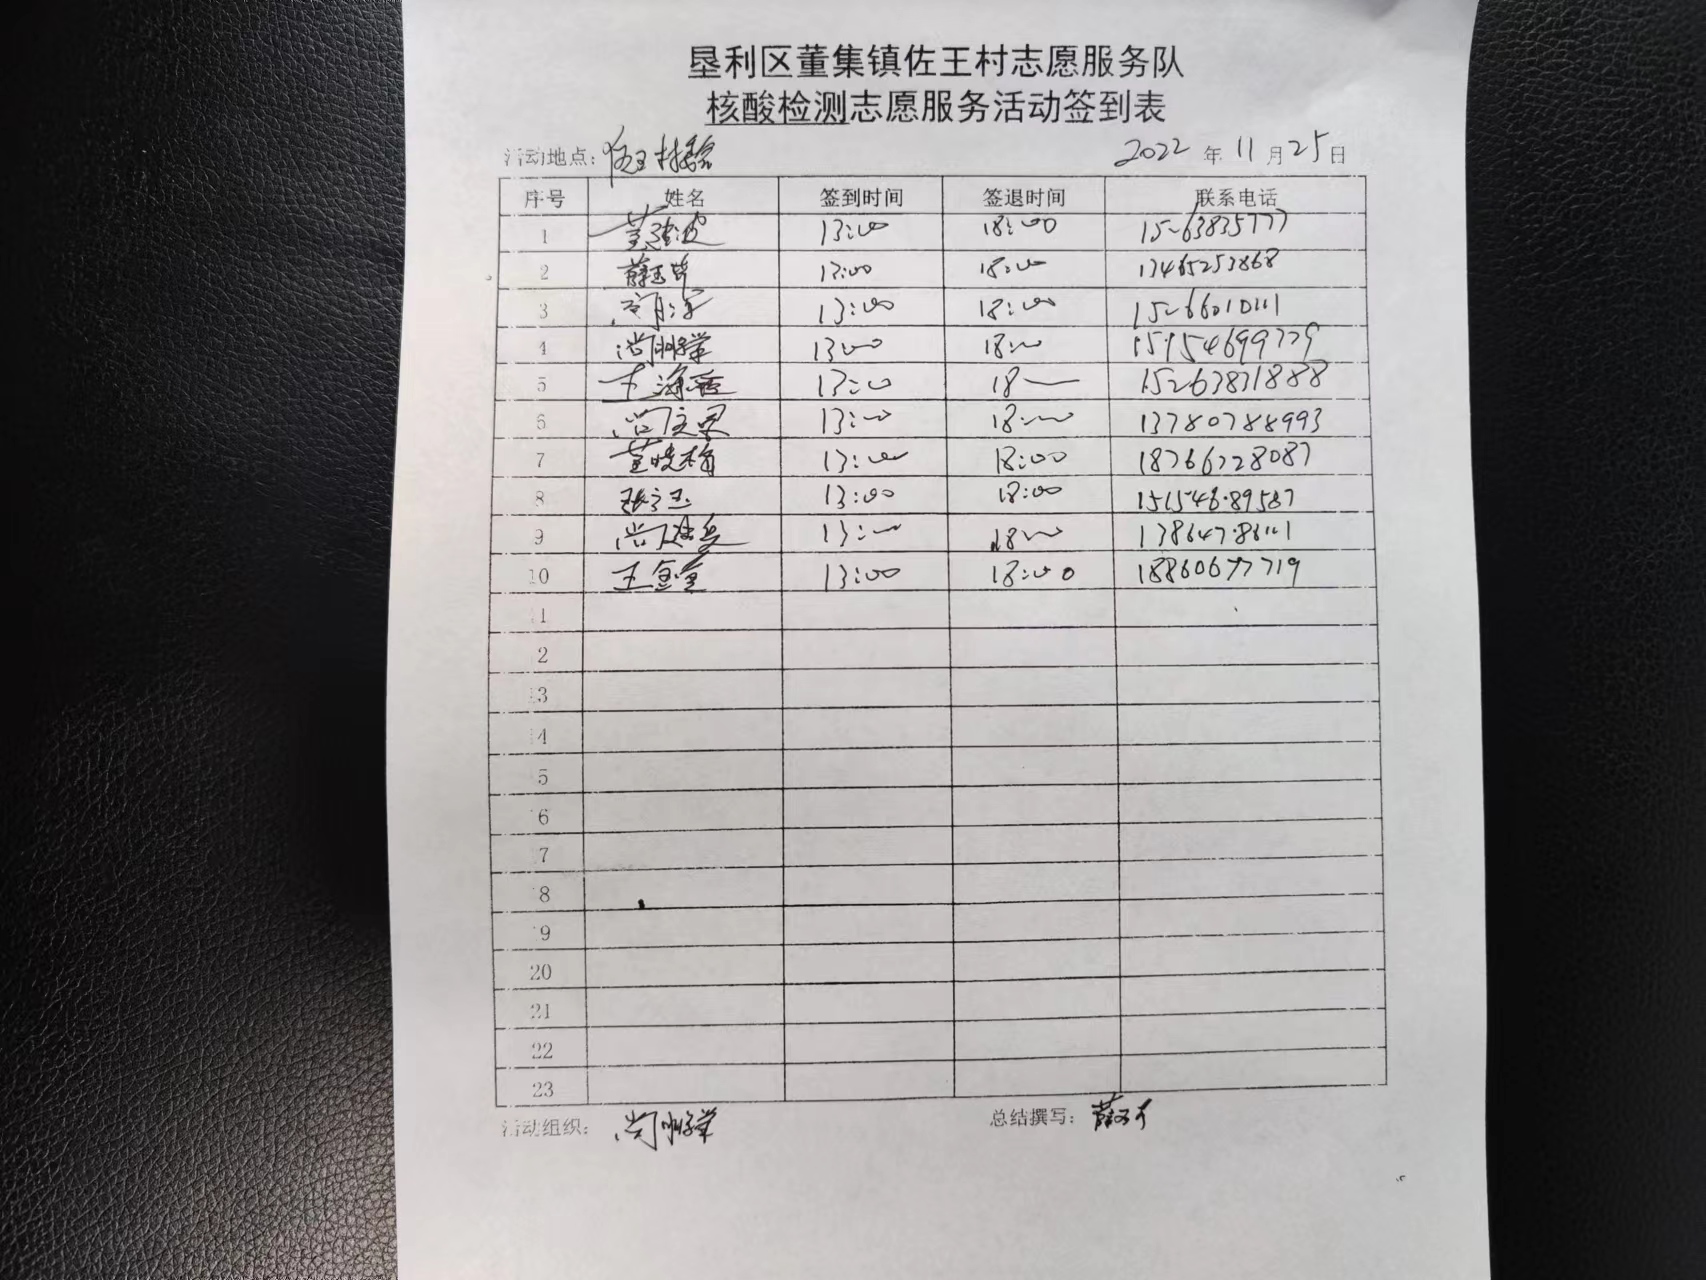 垦利区董集镇佐王村志愿服务队
核酸检测志愿服务活动签到表
活动地点：佐王村 2022年11月25日
序号 姓名 签到时间 签退时间 联系电话
1 董 13:00 18:00 15263835777
2 薛 13:00 18:00 13465253868
3 13:00 18:00 15266010111
4 尚 13:00 18:00 15154699779
5 王海 13:00 18 15263831888
6 尚 13:00 18:00 13780788993
7 董 13:00 18:00 18766728087
8 张立玉 13:00 18:00 15154689587
9 尚 13:00 18:00 13864786111
10 王金 13:00 18:00 18860677719
11
12
13
14
15
16
17
18
19
20
21
22
23
活动组织：尚 总结撰写：薛